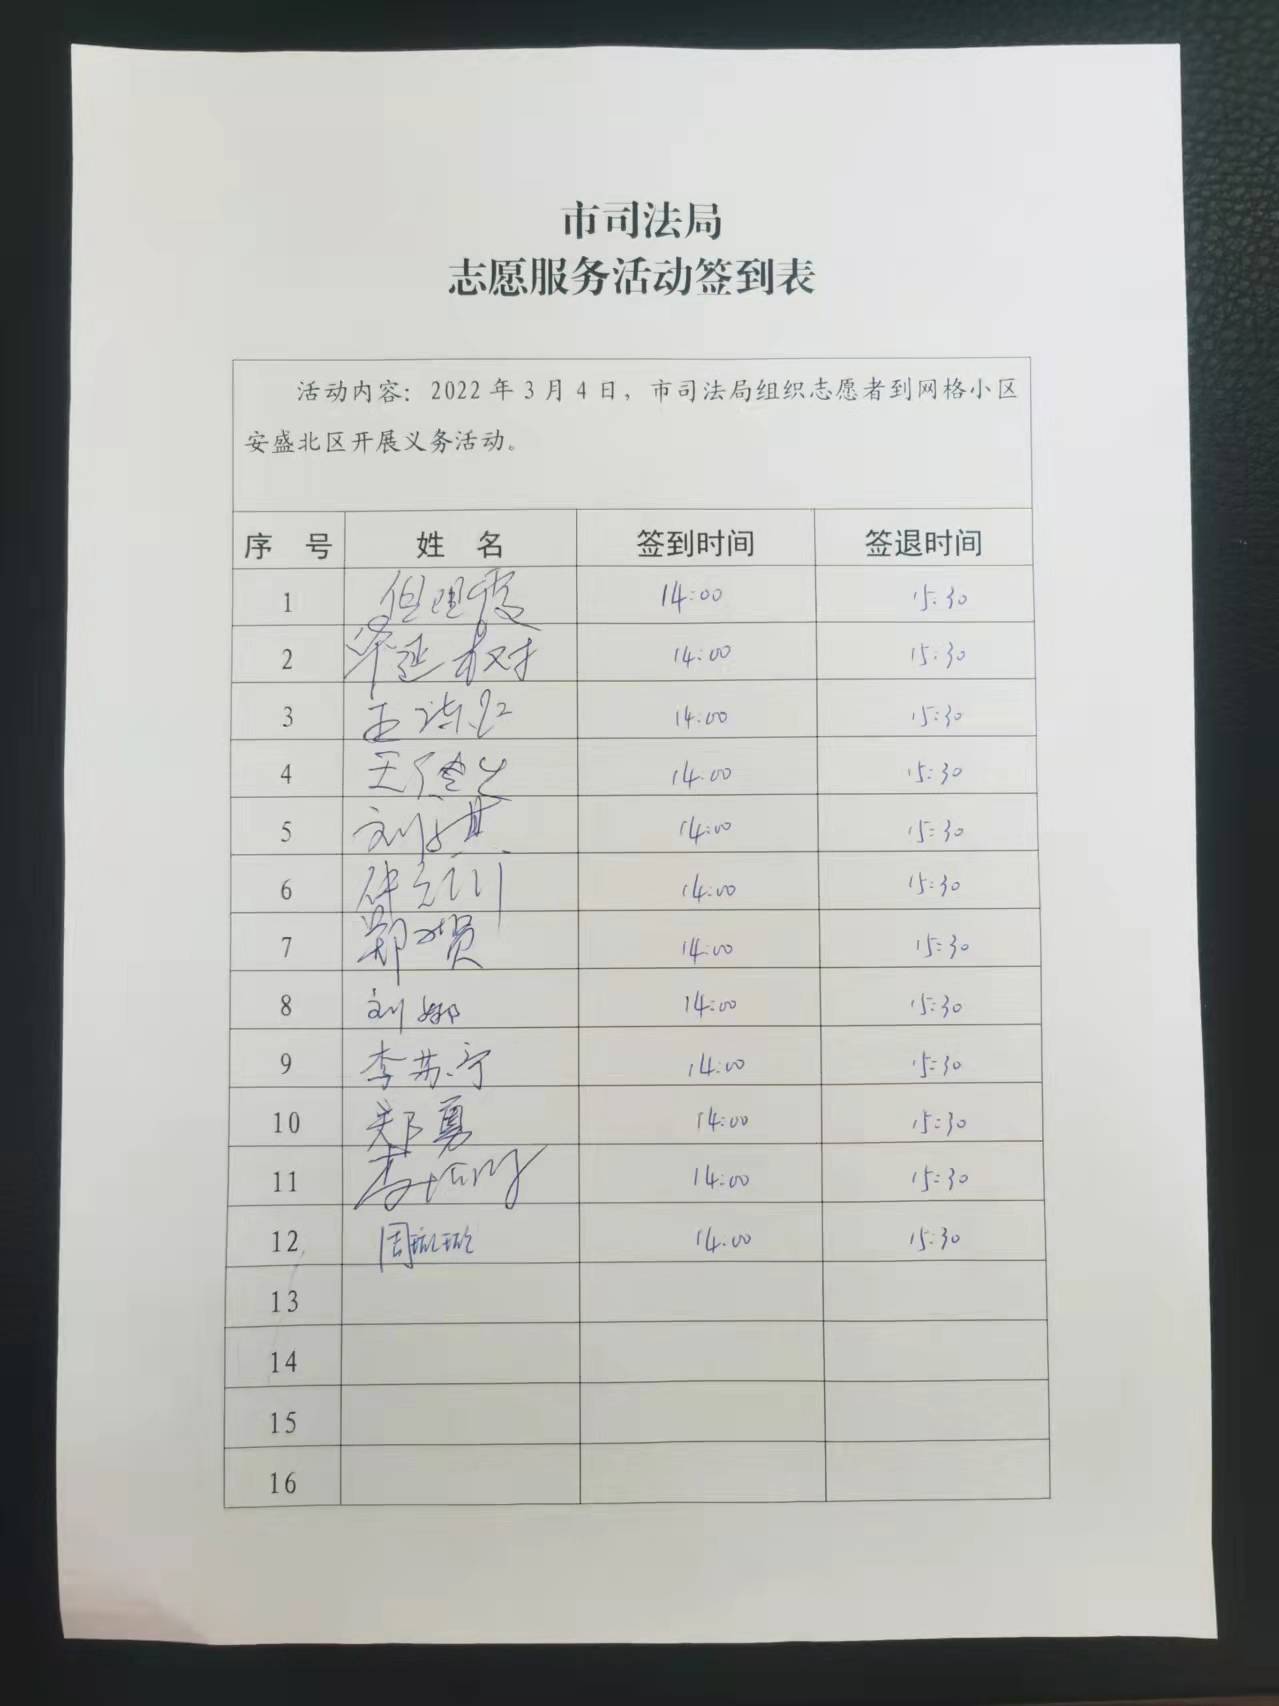 市司法局
志愿服务活动签到表
活动内容：2022年3月4日，市司法局组织志愿者到网格小区
安盛北区开展义务活动。
序 号 姓 名 签到时间 签退时间
1 14:00 15:30
2 14:00 15:30
3 王 14:00 15:30
4 王 14:00 15:30
5 刘 14:00 15:30
6 14:00 15:30
7 郑 14:00 15:30
8 刘娜 14:00 15:30
9 李苏宁 14:00 15:30
10 郑勇 14:00 15:30
11 李 14:00 15:30
12 周 14:00 15:30
13
14
15
16